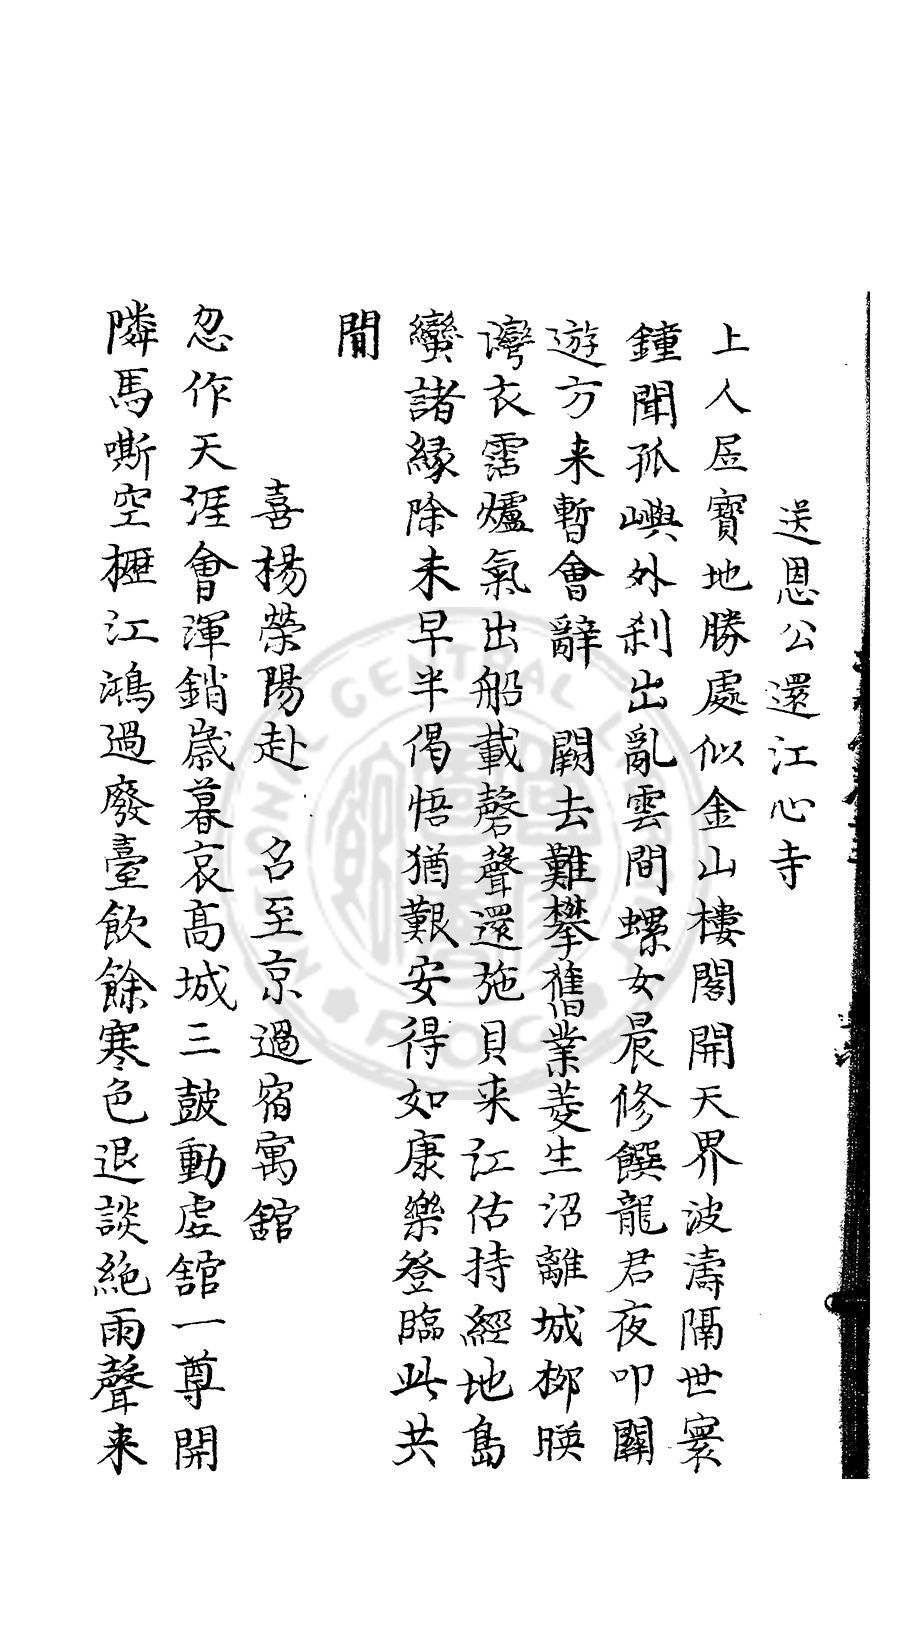 送恩公還江心寺
上人居寶地勝處似金山樓閣開天界波濤隔世寰
鐘聞孤嶼外刹出亂雲間螺女晨修饌龍君夜叩關
遊方来暫會辭　闕去難攀舊業菱生沼離城柳暎
灣衣霑爐氣出船載磬聲還施貝来江估持經地島
蠻諸緣除未早半偈悟猶艱安得如康樂登臨此共
閒
喜楊榮陽赴　召至京過宿寓舘
忽作天涯會渾銷歲暮哀高城三鼓動虛舘一尊開
隣馬嘶空櫪江鴻過廢臺飲餘寒色退談絕雨聲来
NATIONAL CENTRAL LIBRARY
R.O.C.